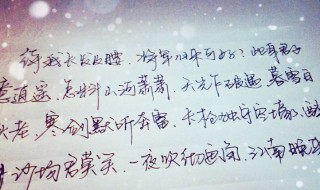 待我长发及腰，将军归来可好？此身君子
意逍遥，怎料山河萧萧，天光乍破遇，暮雪白
头老，寒剑默听奔雷，长枪独守空壕，醉
沙场君莫笑，一夜吹彻画角，江南晚